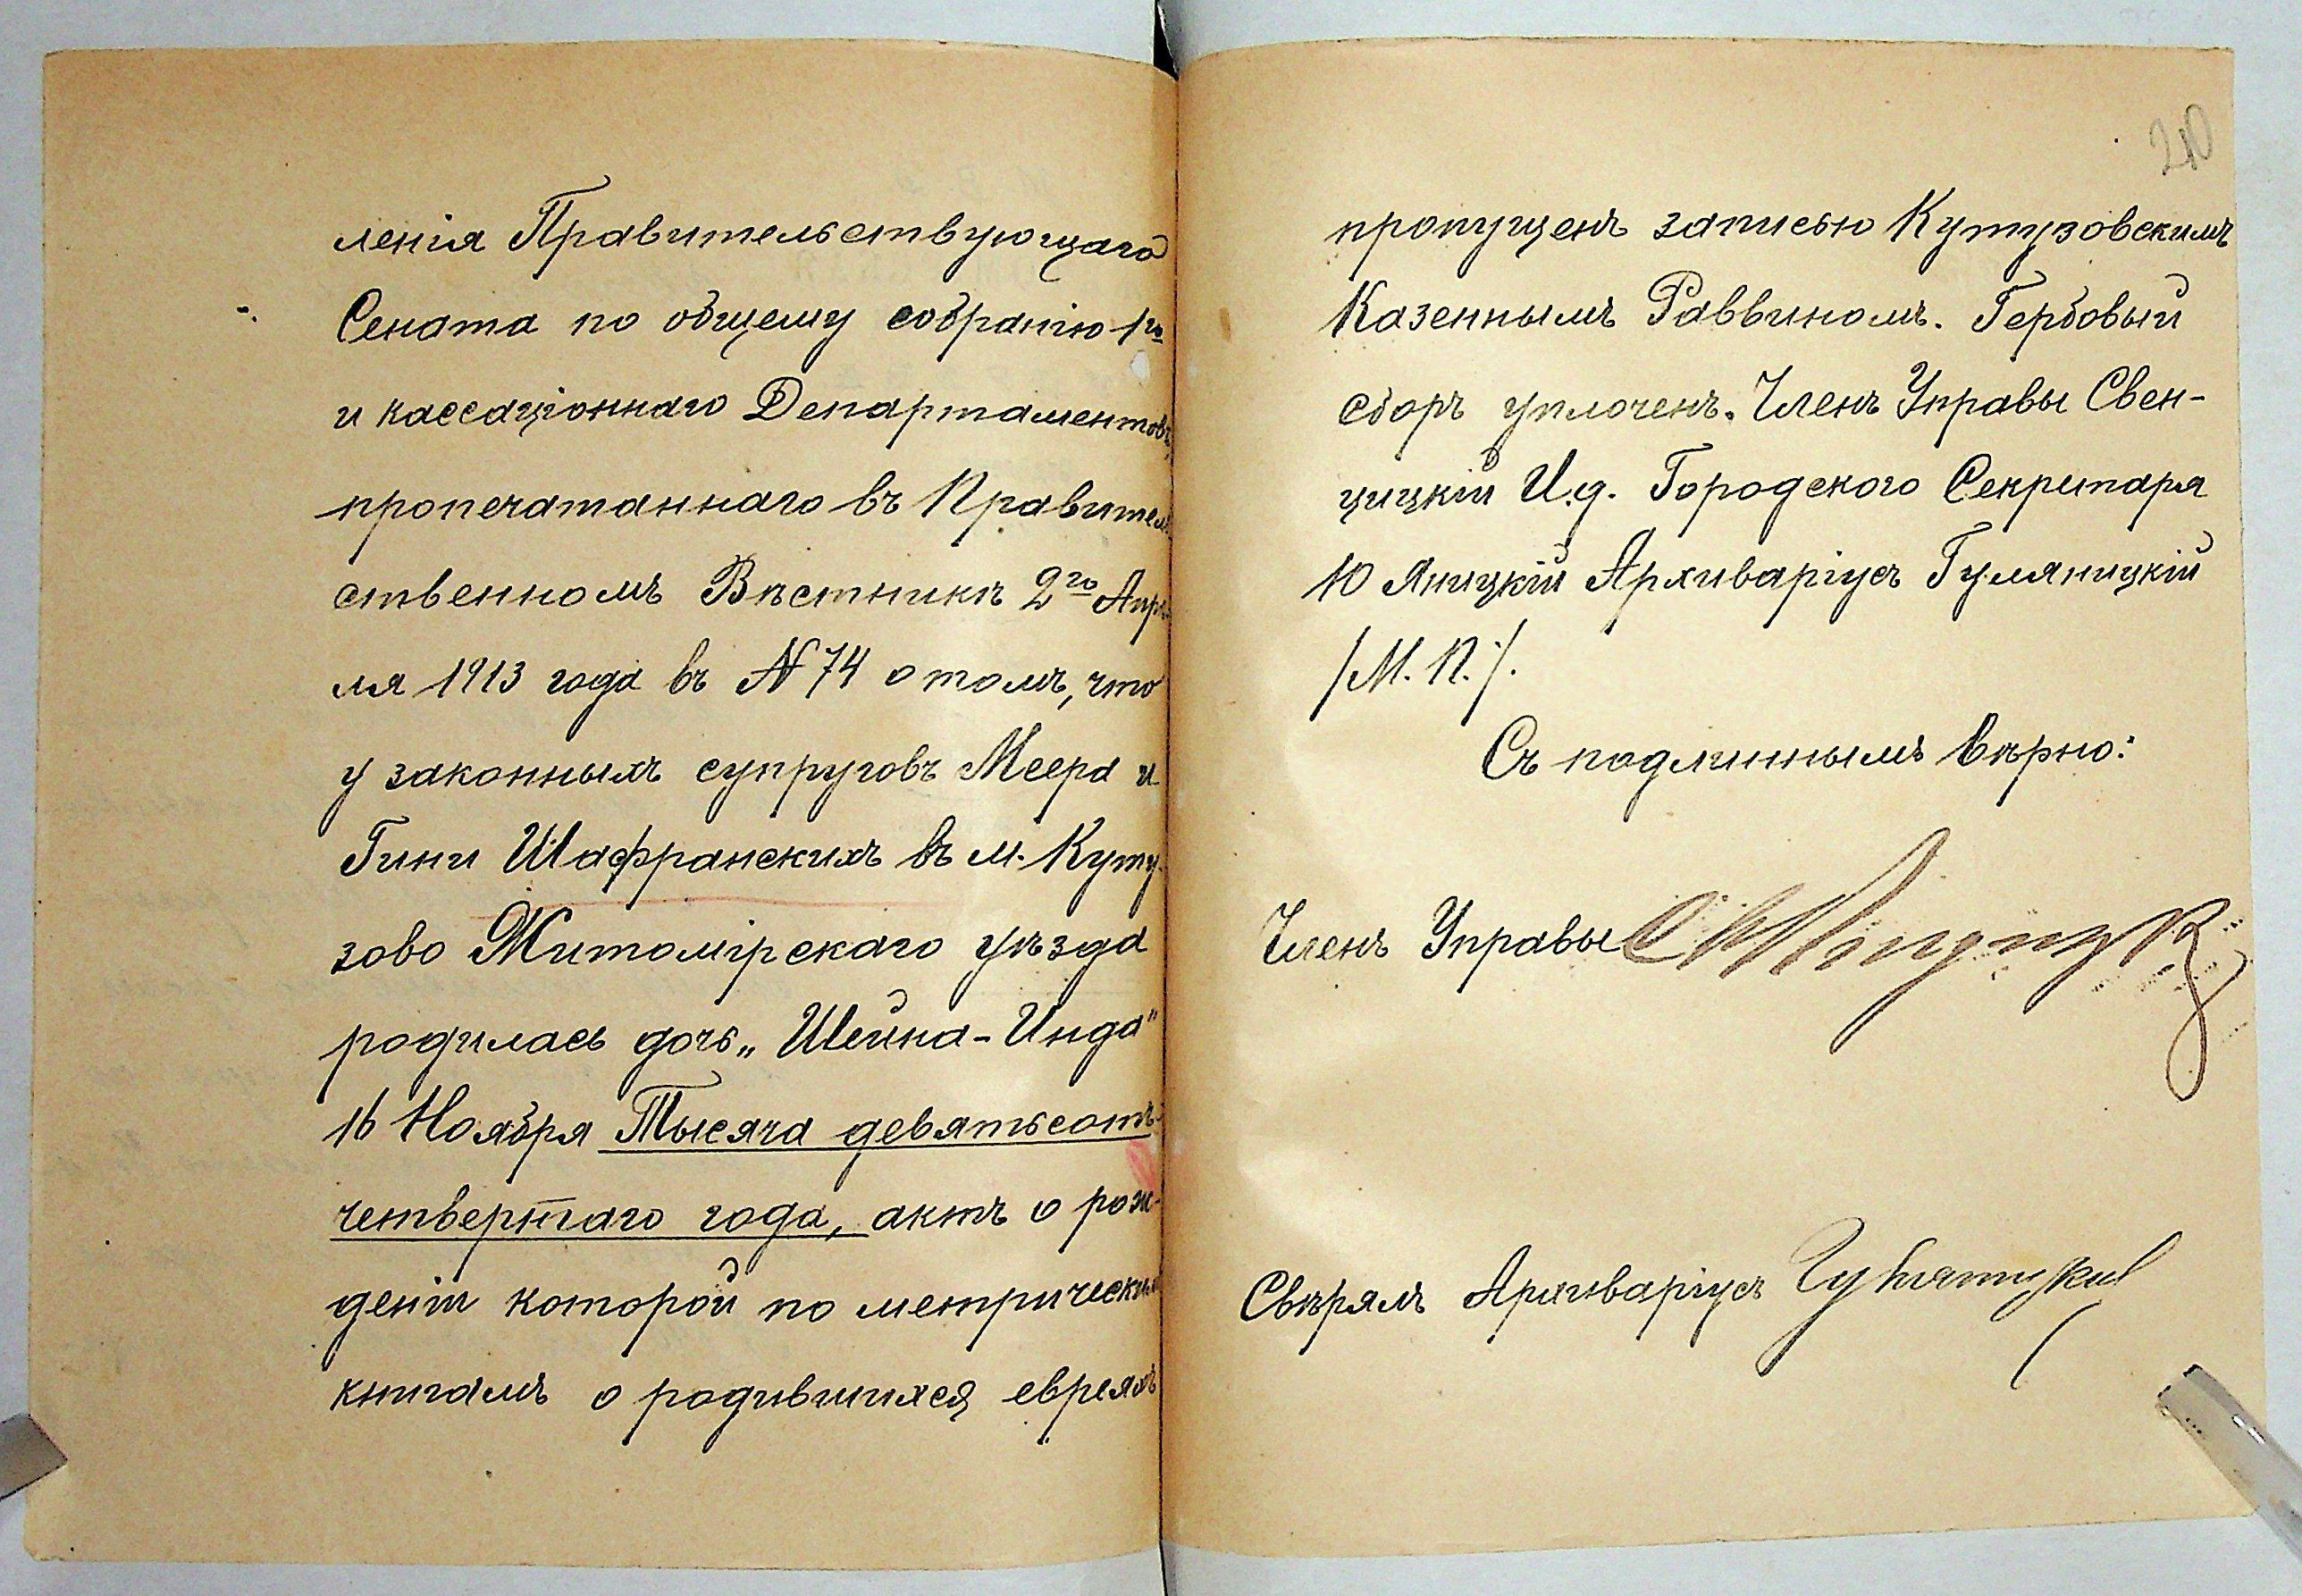 ленія Правительствующаго
Сената по общему собранію 1го
и кассаціоннаго Департаментовъ,
пропечатаннаго въ Правитель
ственномъ Вѣстникѣ 2го Апрѣ
ля 1913 года въ N 74 о томъ, что
у законныхъ супруговъ Меера и
Гини Шафранскихъ въ м. Куту-
зово Житомірскаго уѣзда
родилась дочь „Шейна-Инда"
16 Ноября Тысяча девятьсотъ
четвертаго года, актъ о рож-
деніи которой по метрическимъ
книгамъ о родившихся евреяхъ
210
пропущенъ записью Кутузовскимъ
Казеннымъ Раввиномъ. Гербовый
сборъ уплоченъ. Членъ Управы Свен-
цицкій И.д. Городского Секретаря
Ю Яницкій Архиваріусъ Гуляницкій
/М.П./.
Съ подлиннымъ вѣрно:
Членъ Управы
Свѣрялъ Архиваріусъ Гуляницкій